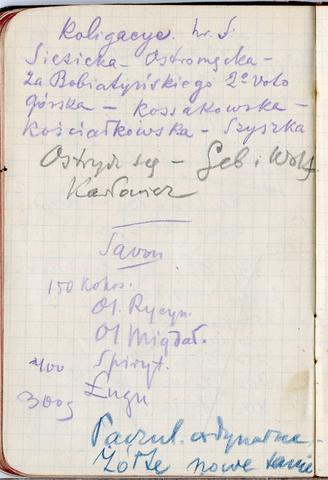 Koligacye. hr. S.
Siezicka - Ostromęcka -
za Bobiatyńskiego 2º voto
Górska - Kossakowska -
Kościałkowska - Szyszka
Ostrych sęg - Geb i Wolf
Karłowicz
Savon
150 Kokos.
Ol. Rycyn.
Ol Migdał.
400 Spiryt.
300g Ługu
Paczul. ordynarne -
Żółte nowe tanie